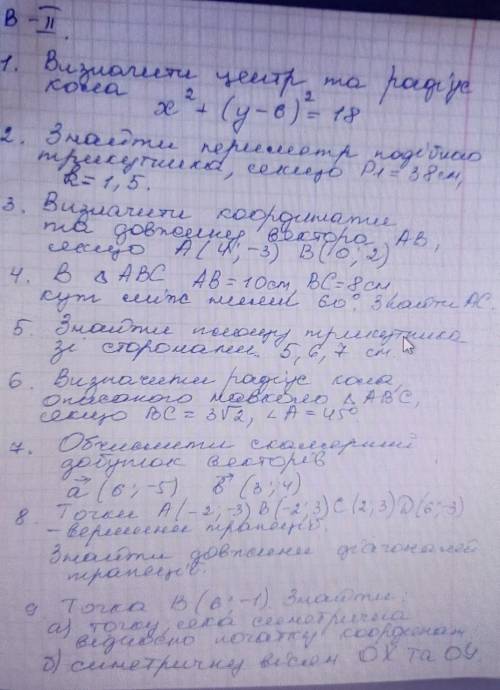 В-II
1. Визначити центр та радіус
кола
x² + (y-6)² = 18
2. Знайти периметр подібного
трикутника, якщо P1 = 38см,
k=1,5.
3. Визначити координати
та довжину вектора AB,
якщо A(4;-3) B(0;2)
4. В ΔABC AB=10см, BC=8см
кут між ними 60°. Знайти AC.
5. Знайти площу трикутника
зі сторонами 5,6,7 см.
6. Визначити радіус кола,
описаного навколо ΔABC,
якщо BC = 3√2, ∠A = 45°
7. Обчислити скалярний
добуток векторів
a⃗ (6;-5) b⃗ (3;4)
8. Точки A(-2;-3) B(-2;3) C(2;3) D(6;-3)
- вершини трапеції.
Знайти довжини діагоналей
трапеції.
9. Точка B(6;-1). Знайти:
а) точку, яка симетрична
відносно початку координат
б) симетричну вісям OX та OY.